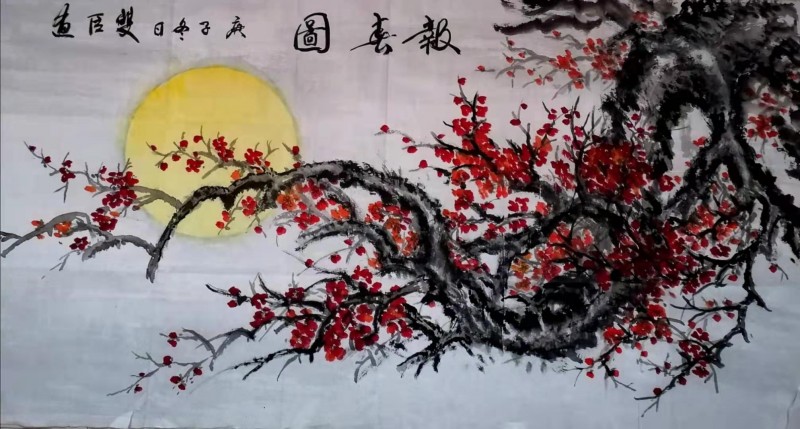 報春圖
庚子冬日雙臣画